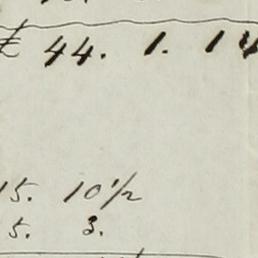 £ 44. 1. 1
15. 10 1/2
5. 3.